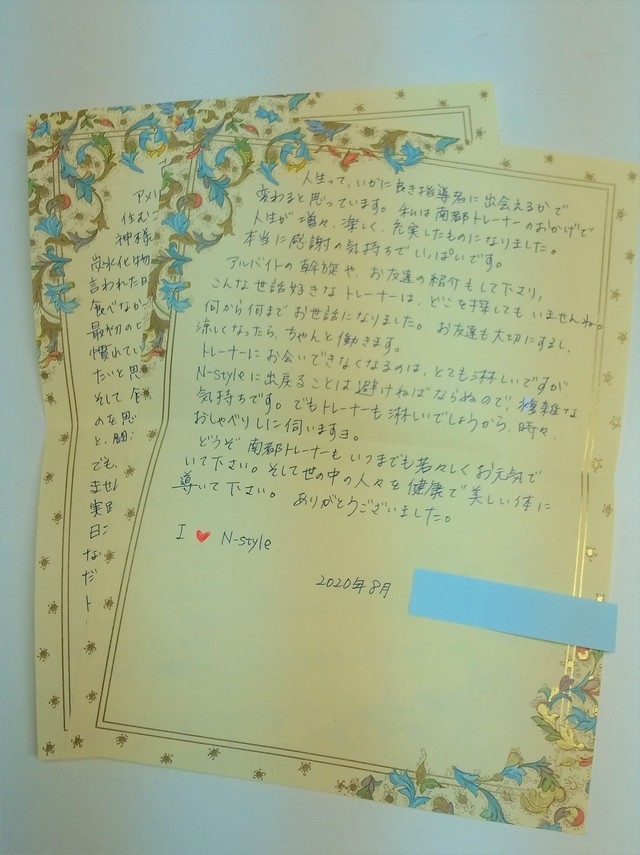 アメリ
住むこ
神様
炭水化物
言われた日
食べなが
最初のと
慣れてい
たいと思
そして
のを思
と、聞
でも、
ませ
実践
日
な
だ
ト
人生って、いかに良き指導者に出会えるかで
変わると思っています。私は南郡トレーナーのおかげで
人生が増々、楽しく、充実したものになりました。
本当に感謝の気持ちでいっぱいです。
アルバイトの幹旋や、お友達の紹介もして下さり、
こんな世話好きなトレーナーは、どこを探してもいませんね。
何から何までお世話になりました。お友達も大切にするし、
涼しくなったら、ちゃんと働きます。
トレーナーにお会いできなくなるのは、とても淋しいですが、
N-styleに出戻ることは避けねばならぬので、複雑な
気持ちです。でもトレーナーも淋しいでしょうから、時々、
おしゃべりしに伺いますヨ。
どうぞ南郡トレーナーもいつまでも若々しくお元気で
いて下さい。そして世の中の人々を健康で美しい体に
導いて下さい。ありがとうございました。
I ♥ N-style
2020年8月